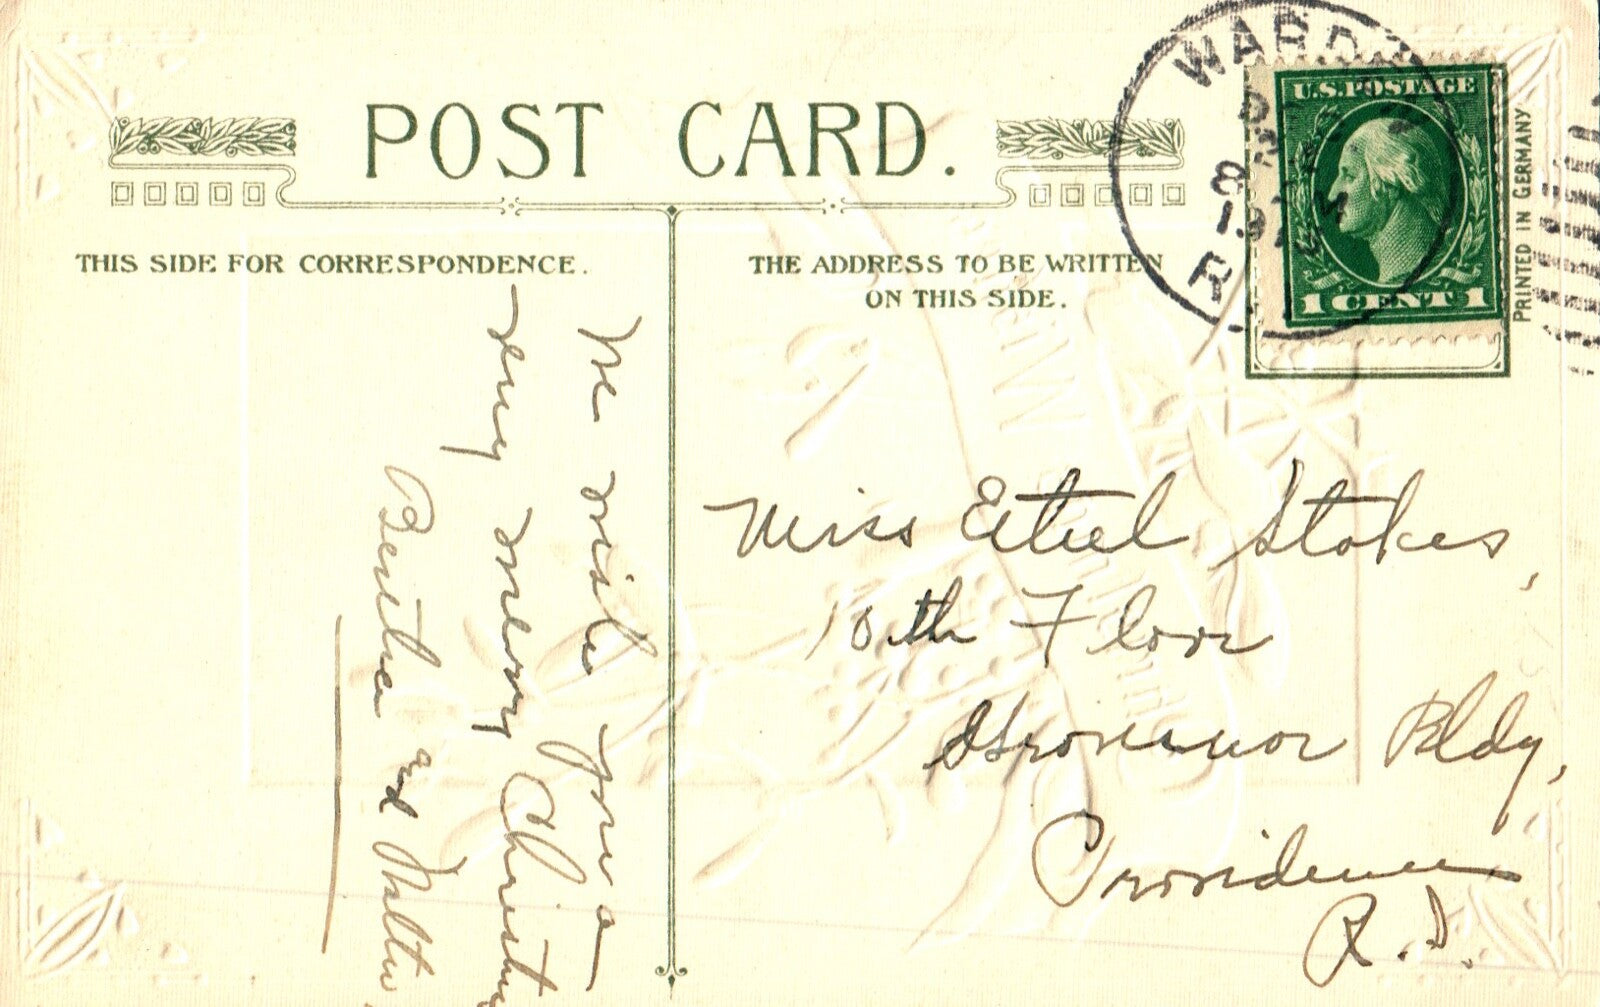 POST CARD.
THIS SIDE FOR CORRESPONDENCE.
THE ADDRESS TO BE WRITTEN
ON THIS SIDE.
WARD
R
U.S. POSTAGE
1 CENT 1
PRINTED IN GERMANY
We wish you a
very merry Christmas
Bertha and Walter
Miss Ethel Stokes,
10th Floor
Grosvenor Bldg,
Providence
R.I.